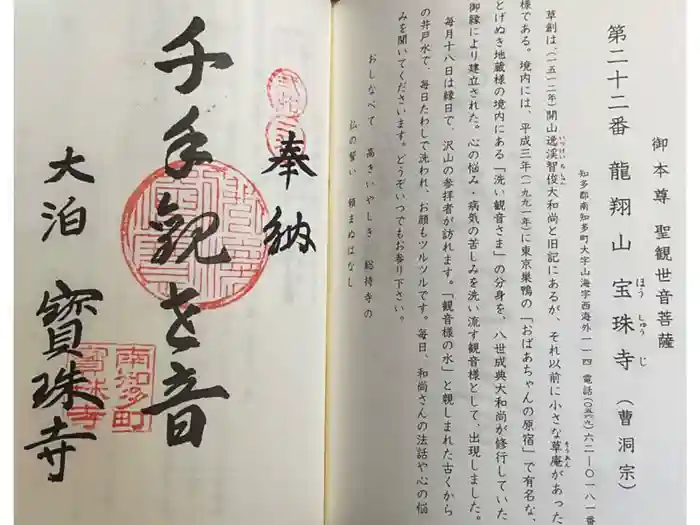 第二十二番 龍翔山 宝珠寺（曹洞宗）
ほうしゅうじ
御本尊 聖観世音菩薩
知多郡南知多町大字山海字西海外一一四 電話(〇五六九)六二―〇一八一番
草創は、(一五一二年)開山逸渓智俊大和尚と旧記にあるが、それ以前に小さな草庵があった
いっけいちしゅん
そうあん
様である。境内には、平成三年(一九九一年)に東京巣鴨の「おばあちゃんの原宿」で有名な、
とげぬき地蔵様の境内にある「洗い観音さま」の分身を、八世成典大和尚が修行していた
御縁により建立された。心の悩み・病気の苦しみを洗い流す観音様として、出現しました。
毎月十八日は縁日で、沢山の参拝者が訪れます。「観音様の水」と親しまれた古くから
の井戸水で、毎日たわしで洗われ、お顔もツルツルです。毎日、和尚さんの法話や心の悩
みを聞いてくださいます。どうぞいつでもお参り下さい。
おしなべて 高きいやしき 総持寺の
仏の誓い 頼まぬはなし
奉納
千手観世音
大泊 寳珠寺
南知多町
寳珠寺